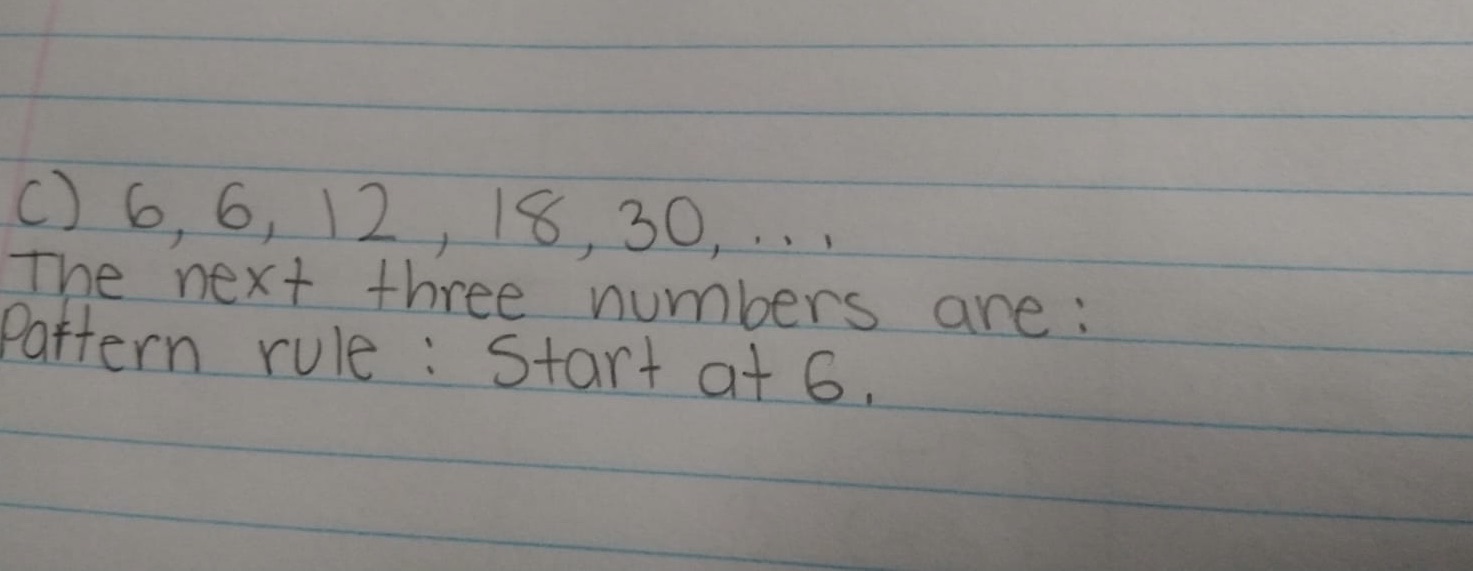 C) 6, 6, 12, 18, 30, ...
The next three numbers are:
Pattern rule: Start at 6.